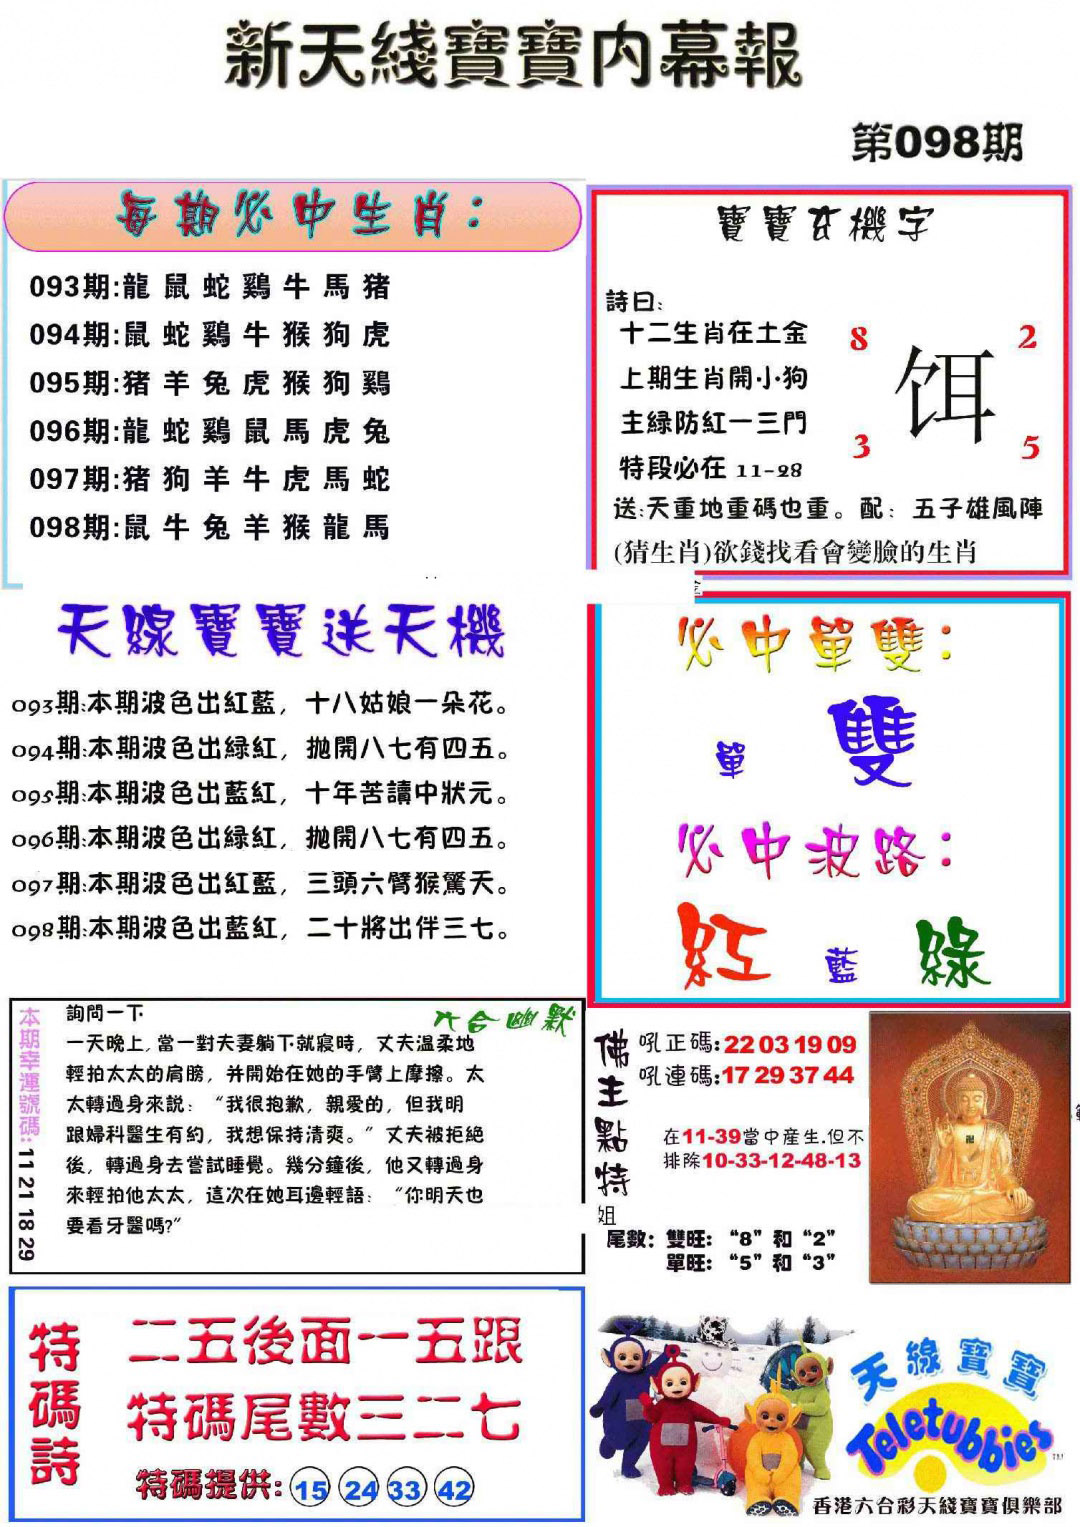 新天綫寶寶内幕報
第098期
每期必中生肖:
093期:龍鼠蛇鷄牛馬猪
094期:鼠蛇鷄牛猴狗虎
095期:猪羊兔虎猴狗鷄
096期:龍蛇鷄鼠馬虎兔
097期:猪狗羊牛虎馬蛇
098期:鼠牛兔羊猴龍馬
寶寶玄機字
詩曰:
十二生肖在土金
上期生肖開小狗
主緑防紅一三門
特段必在 11-28
8 2
饵
3 5
送:天重地重碼也重。配：五子雄風陣
(猜生肖)欲錢找看會變臉的生肖
天線寶寶送天機
093期:本期波色出紅藍，十八姑娘一朵花。
094期:本期波色出緑紅，抛開八七有四五。
095期:本期波色出藍紅，十年苦讀中狀元。
096期:本期波色出緑紅，抛開八七有四五。
097期:本期波色出紅藍，三頭六臂猴驚天。
098期:本期波色出藍紅，二十將出伴三七。
必中單雙:
單 雙
必中波路:
紅 藍 綠
本期幸運號碼: 11 21 18 29
六合幽默
詢問一下
一天晚上,當一對夫妻躺下就寢時，丈夫温柔地
輕拍太太的肩膀，并開始在她的手臂上摩擦。太
太轉過身來説：“我很抱歉，親愛的，但我明
跟婦科醫生有約，我想保持清爽。”丈夫被拒絶
後，轉過身去嘗試睡覺。幾分鐘後，他又轉過身
來輕拍他太太，這次在她耳邊輕語：“你明天也
要看牙醫嗎?”
佛主點特
姐
吼正碼:22 03 19 09
吼連碼:17 29 37 44
在11-39當中産生.但不
排除10-33-12-48-13
尾數：雙旺：“8”和“2”
單旺：“5”和“3”
特碼詩
二五後面一五跟
特碼尾數三二七
特碼提供: 15 24 33 42
天線寶寶
Teletubbies
TM
香港六合彩天綫寶寶俱樂部